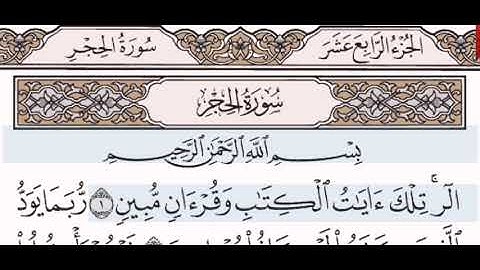 الجُزْءُ الرَّابِعَ عَشَرَ
سُورَةُ الحِجْرِ
سُورَةُ الحِجْرِ
بِسْمِ ٱللَّهِ ٱلرَّحْمَٰنِ ٱلرَّحِيمِ
الٓرۚ تِلْكَ ءَايَٰتُ ٱلْكِتَٰبِ وَقُرْءَانٍ مُّبِينٍ ١ رُّبَمَا يَوَدُّ